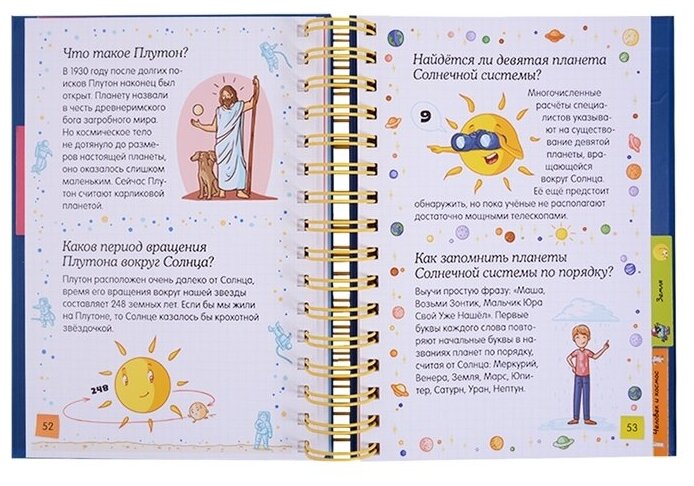 Что такое Плутон?
В 1930 году после долгих по-
исков Плутон наконец был
открыт. Планету назвали
в честь древнеримского
бога загробного мира.
Но космическое тело
не дотянуло до разме-
ров настоящей планеты,
оно оказалось слишком
маленьким. Сейчас Плу-
тон считают карликовой
планетой.
Каков период вращения
Плутона вокруг Солнца?
Плутон расположен очень далеко от Солнца,
время его вращения вокруг нашей звезды
составляет 248 земных лет. Если бы мы жили
на Плутоне, то Солнце казалось бы крохотной
звёздочкой.
248
52
Найдётся ли девятая планета
Солнечной системы?
9
Многочисленные
расчёты специа-
листов указыва-
ют на существо-
вание девятой
планеты, вра-
щающейся
вокруг Солнца.
Её ещё предстоит
обнаружить, но пока учёные не располагают
достаточно мощными телескопами.
Как запомнить планеты
Солнечной системы по порядку?
Выучи простую фразу: «Маша,
Возьми Зонтик, Мальчик Юра
Свой Уже Нашёл». Первые
буквы каждого слова повто-
ряют начальные буквы в на-
званиях планет по порядку,
считая от Солнца: Меркурий,
Венера, Земля, Марс, Юпи-
тер, Сатурн, Уран, Нептун.
53
Земля
Человек и космос